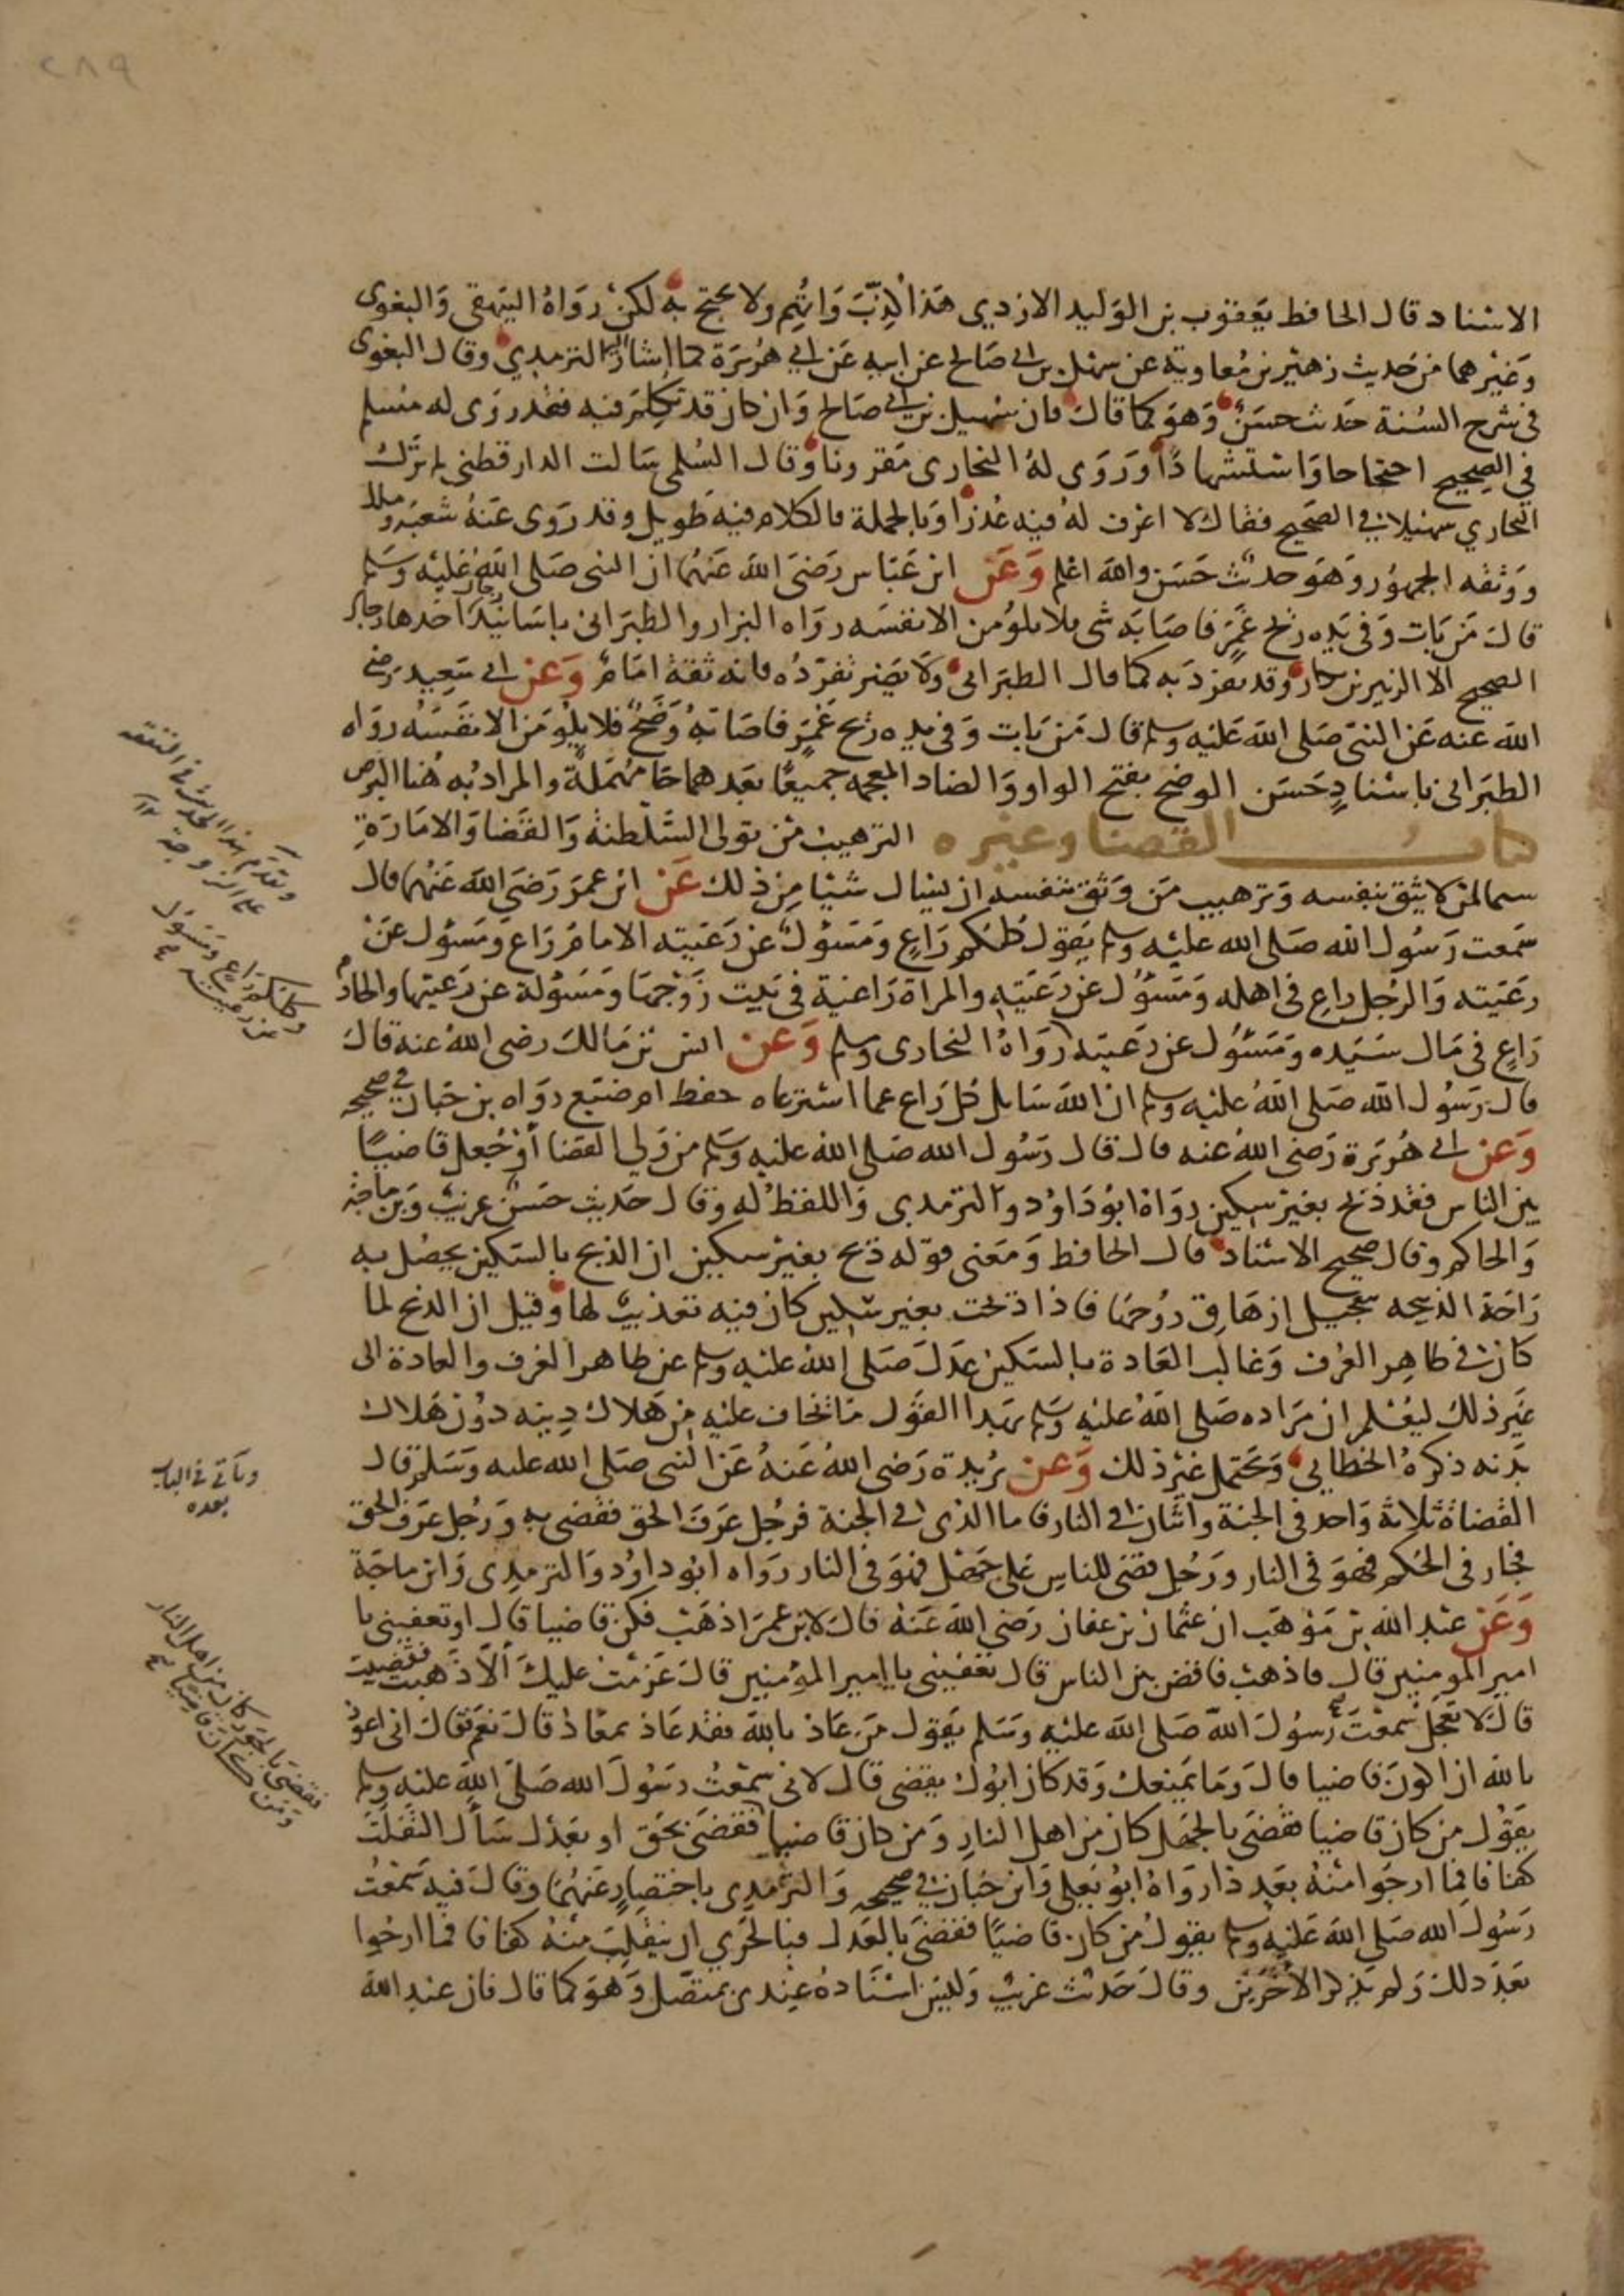 ٢٨٩
الاسناد قال الحافظ يعقوب بن الوليد الازدي هذا كذب واتهم ولا يحتج به لكن رواه البيهقي والبغوي
وغيرهما من حديث زهير بن معاوية عن سهيل بن ابي صالح عن ابيه عن ابي هريرة كما اشار اليه الترمذي وقال البغوي
في شرح السنة حديث حسن وهو كما قال فان سهيل بن ابي صالح وان كان قد تكلم فيه فقد روى له مسلم
في الصحيح احتجاجا واستشهادا وروى له البخاري مقرونا وقال السلمي سالت الدارقطني لم ترك
البخاري سهيلا في الصحيح فقال لا اعرف له فيه عذرا وبالجملة فالكلام فيه طويل وقد روى عنه شعبة ومالك
ووثقه الجمهور وهو حديث حسن والله اعلم وعن ابن عباس رضي الله عنهما ان النبي صلى الله عليه وسلم
قال من بات وفي يده ريح غمر فاصابه شي فلا يلومن الا نفسه رواه البزار والطبراني باسانيد رجال احدها رجال
الصحيح الا الزبير بن بكار وقد تفرد به كما قال الطبراني ولا يضر تفرده فانه ثقة امام وعن ابي سعيد رضي
الله عنه عن النبي صلى الله عليه وسلم قال من بات وفي يده ريح غمر فاصابه وضح فلا يلومن الا نفسه رواه
الطبراني باسناد حسن الوضح بفتح الواو والضاد المعجمة جميعا بعدهما حا مهملة والمراد به هنا البرص
كتاب القضا وغيره الترهيب من تولى السلطنة والقضا والامارة
سيما لمن لا يثق بنفسه وترهيب من وثق بنفسه ان يسال شيئا من ذلك عن ابن عمر رضي الله عنهما قال
سمعت رسول الله صلى الله عليه وسلم يقول كلكم راع ومسؤل عن رعيته الامام راع ومسؤل عن
رعيته والرجل راع في اهله ومسؤل عن رعيته والمراة راعية في بيت زوجها ومسؤلة عن رعيتها والخادم
راع في مال سيده ومسؤل عن رعيته رواه البخاري ومسلم وعن انس بن مالك رضي الله عنه قال
قال رسول الله صلى الله عليه وسلم ان الله سايل كل راع عما استرعاه حفظ ام ضيع رواه بن حبان في صحيحه
وعن ابي هريرة رضي الله عنه قال قال رسول الله صلى الله عليه وسلم من ولي القضا أو جعل قاضيا
بين الناس فقد ذبح بغير سكين رواه ابو داود والترمذي واللفظ له وقال حديث حسن غريب وبن ماجه
والحاكم وقال صحيح الاسناد قال الحافظ ومعنى قوله ذبح بغير سكين ان الذبح بالسكين يحصل به
راحة الذبيحه بتعجيل ازهاق روحها فاذا ذبحت بغير سكين كان فيه تعذيب لها وقيل ان الذبح لما
كان في ظاهر العرف وغالب العادة بالسكين عدل صلى الله عليه وسلم عن ظاهر العرف والعادة الى
غير ذلك ليعلم ان مراده صلى الله عليه وسلم بهذا القول ما يخاف عليه من هلاك دينه دون هلاك
بدنه ذكره الخطابي ويحتمل غير ذلك وعن بريدة رضي الله عنه عن النبي صلى الله عليه وسلم قال
القضاة ثلاثة واحد في الجنة واثنان في النار فاما الذي في الجنة فرجل عرف الحق فقضى به ورجل عرف الحق
فجار في الحكم فهو في النار ورجل قضى للناس على جهل فهو في النار رواه ابو داود والترمذي وابن ماجة
وعن عبد الله بن موهب ان عثمان بن عفان رضي الله عنه قال لابن عمر اذهب فكن قاضيا قال اوتعفيني يا
امير المومنين قال فاذهب فاقض بين الناس قال تعفيني يا امير المؤمنين قال عزمت عليك ألا ذهبت فقضيت
قال لا تعجل سمعت رسول الله صلى الله عليه وسلم يقول من عاذ بالله فقد عاذ بمعاذ قال نعم قال اني اعوذ
بالله ان اكون قاضيا قال وما يمنعك وقد كان ابوك يقضي قال لاني سمعت رسول الله صلى الله عليه وسلم
يقول من كان قاضيا فقضى بالجهل كان من اهل النار ومن كان قاضيا فقضى بحق او بعدل سأل التفلت
كفافا فما ارجوا منه بعد ذا رواه ابو يعلى وابن حبان في صحيحه والترمذي باختصار عنهما وقال فيه سمعت
رسول الله صلى الله عليه وسلم يقول من كان قاضيا فقضى بالعدل فبالحري ان ينفلت منه كفافا فما ارجوا
بعد ذلك ولم يذكر الاخرين وقال حديث غريب وليس اسناده عندي بمتصل وهو كما قال فان عبد الله
وتقدم هذا الحديث في النفقه
على الزوجة ١٢
وكلكم راع ومسؤل
عن رعيته
وياتي في الباب
بعده
فقضى بالجور كان من اهل النار
ومن كان قاضيا